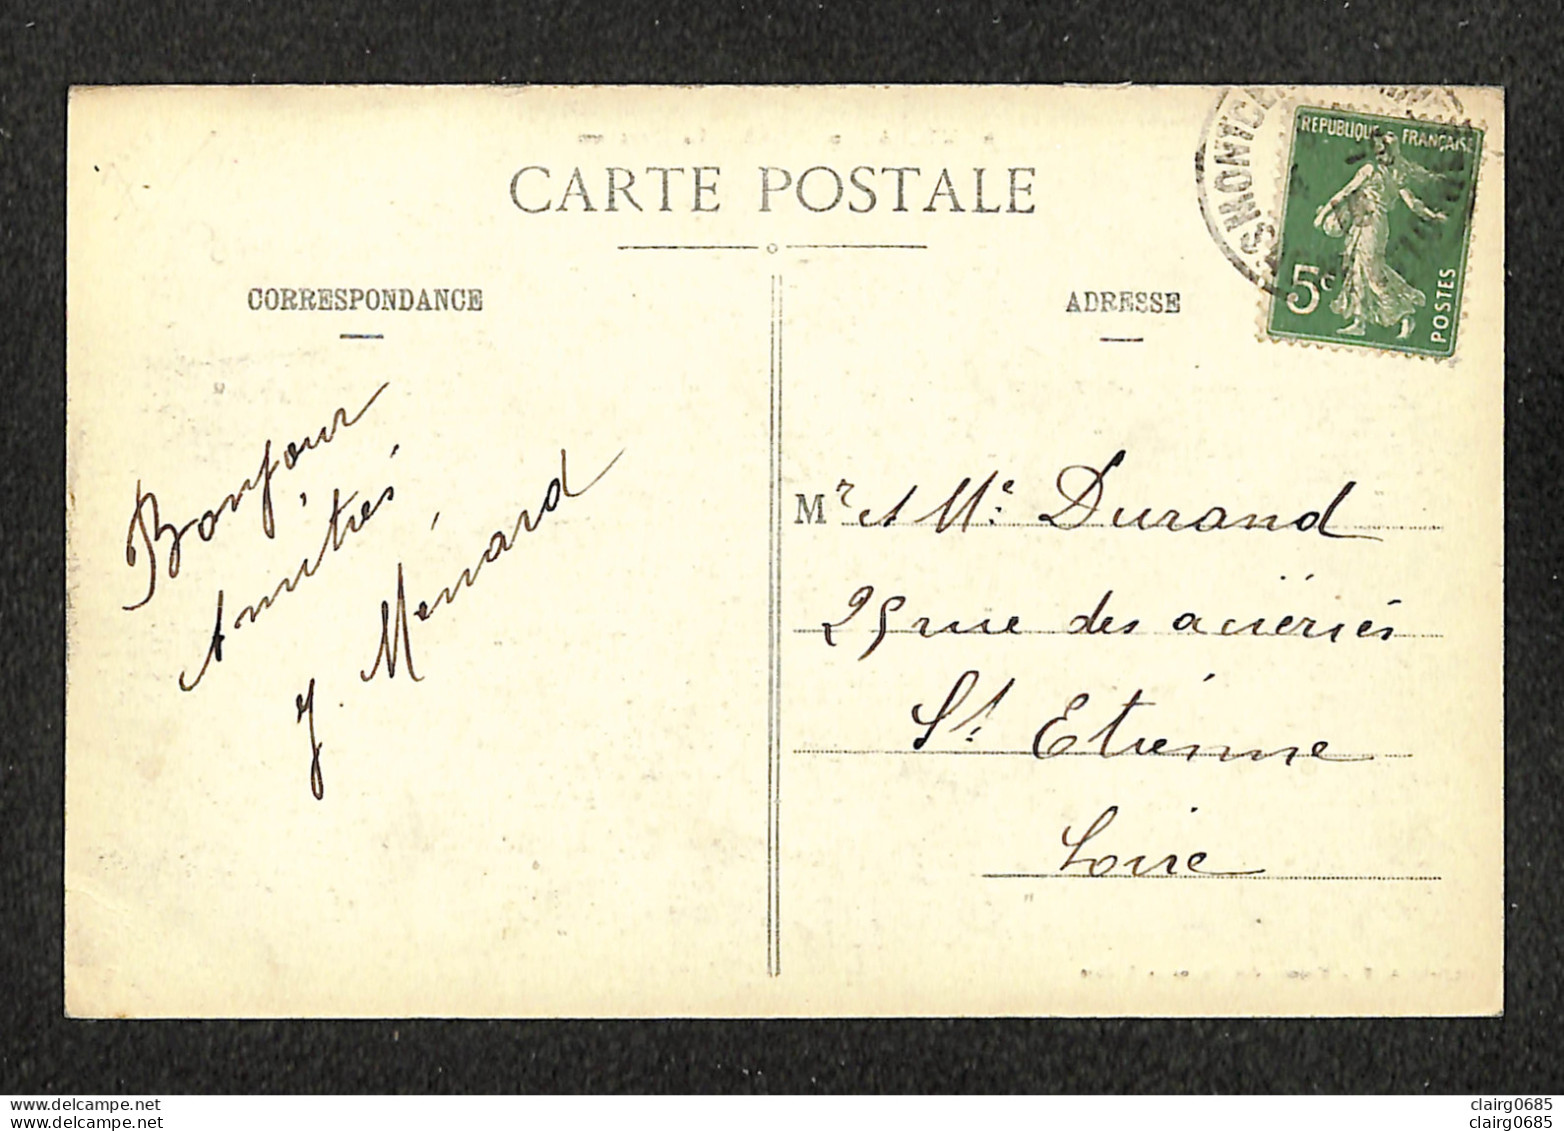 CARTE POSTALE
CORRESPONDANCE
ADRESSE
REPUBLIQUE FRANÇAISE
5c
POSTES
Bonjour
Amitiés
J. Ménard
Mr et Me. Durand
25 rue des aciéries
St Etienne
Loire
www.delcampe.net
www.delcampe.net
clairg0685
clairg0685